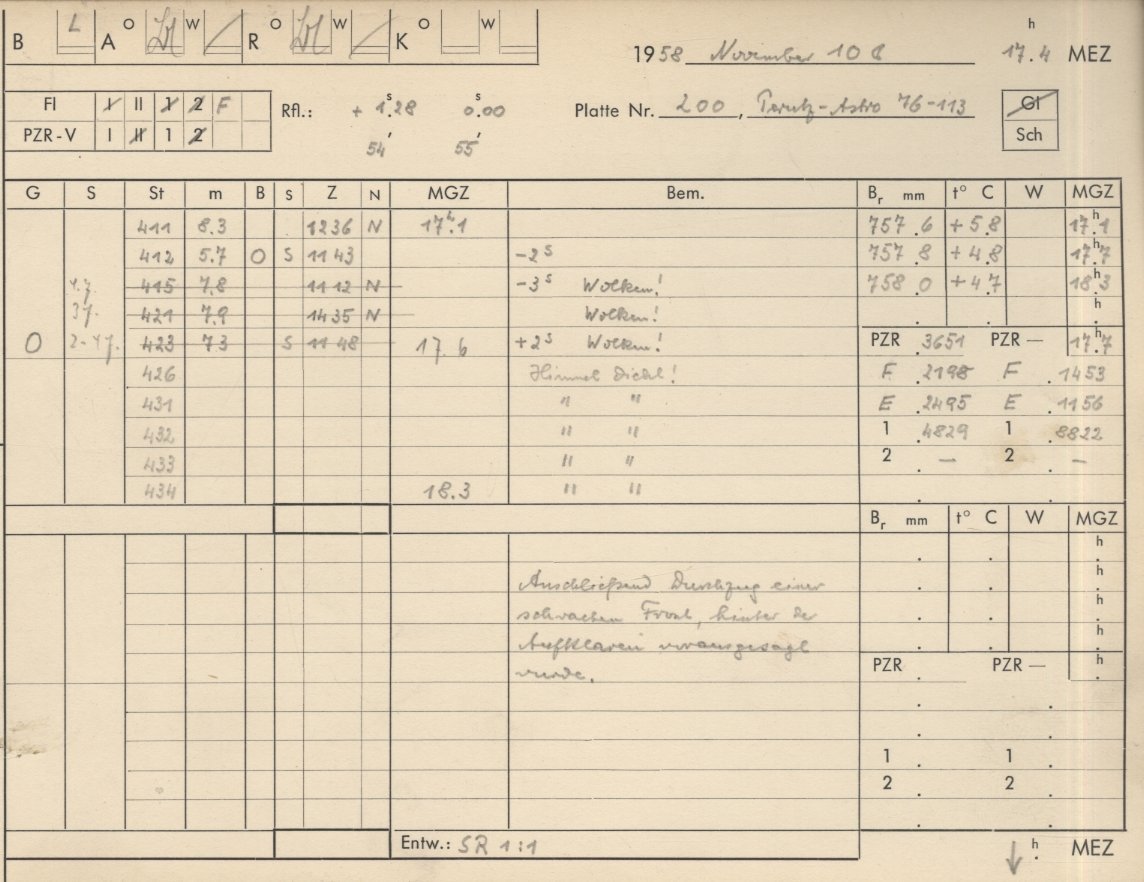 B L A O W R O W K O W
1958 November 10 17.4 h MEZ
Fl I II 1 2 F
PZR-V I II 1 2
Rfl.: + 1.28 s 0.00 s
54' 55'
Platte Nr. 200, Perutz-Astro 76-113
Gl
Sch
G S St m B S Z N MGZ Bem. Br mm t° C W MGZ
411 8.3 1236 N 17h.1 757.6 +5.8 17h.1
412 5.7 O S 1143 -2s 757.8 +4.8 17h.7
415 7.8 1112 N -3s Wolken! 758.0 +4.7 18h.3
3j. 421 7.9 1435 N Wolken! h
O 2-4j. 423 7.3 S 1148 17.6 +2s Wolken! PZR .3651 PZR — 17h.7
426 Himmel Dicht! F .2198 F .1453
431 " " E .2495 E .1156
432 " " 1 .4829 1 .8822
433 " " 2 — 2 —
434 18.3 " "
Br mm t° C W MGZ
h
Anschließend Durchzug einer h
schwachen Front, hinter der h
Aufklaren vorausgesagt h
wurde. PZR PZR — h
1 1
2 2
Entw.: SR 1:1
h MEZ